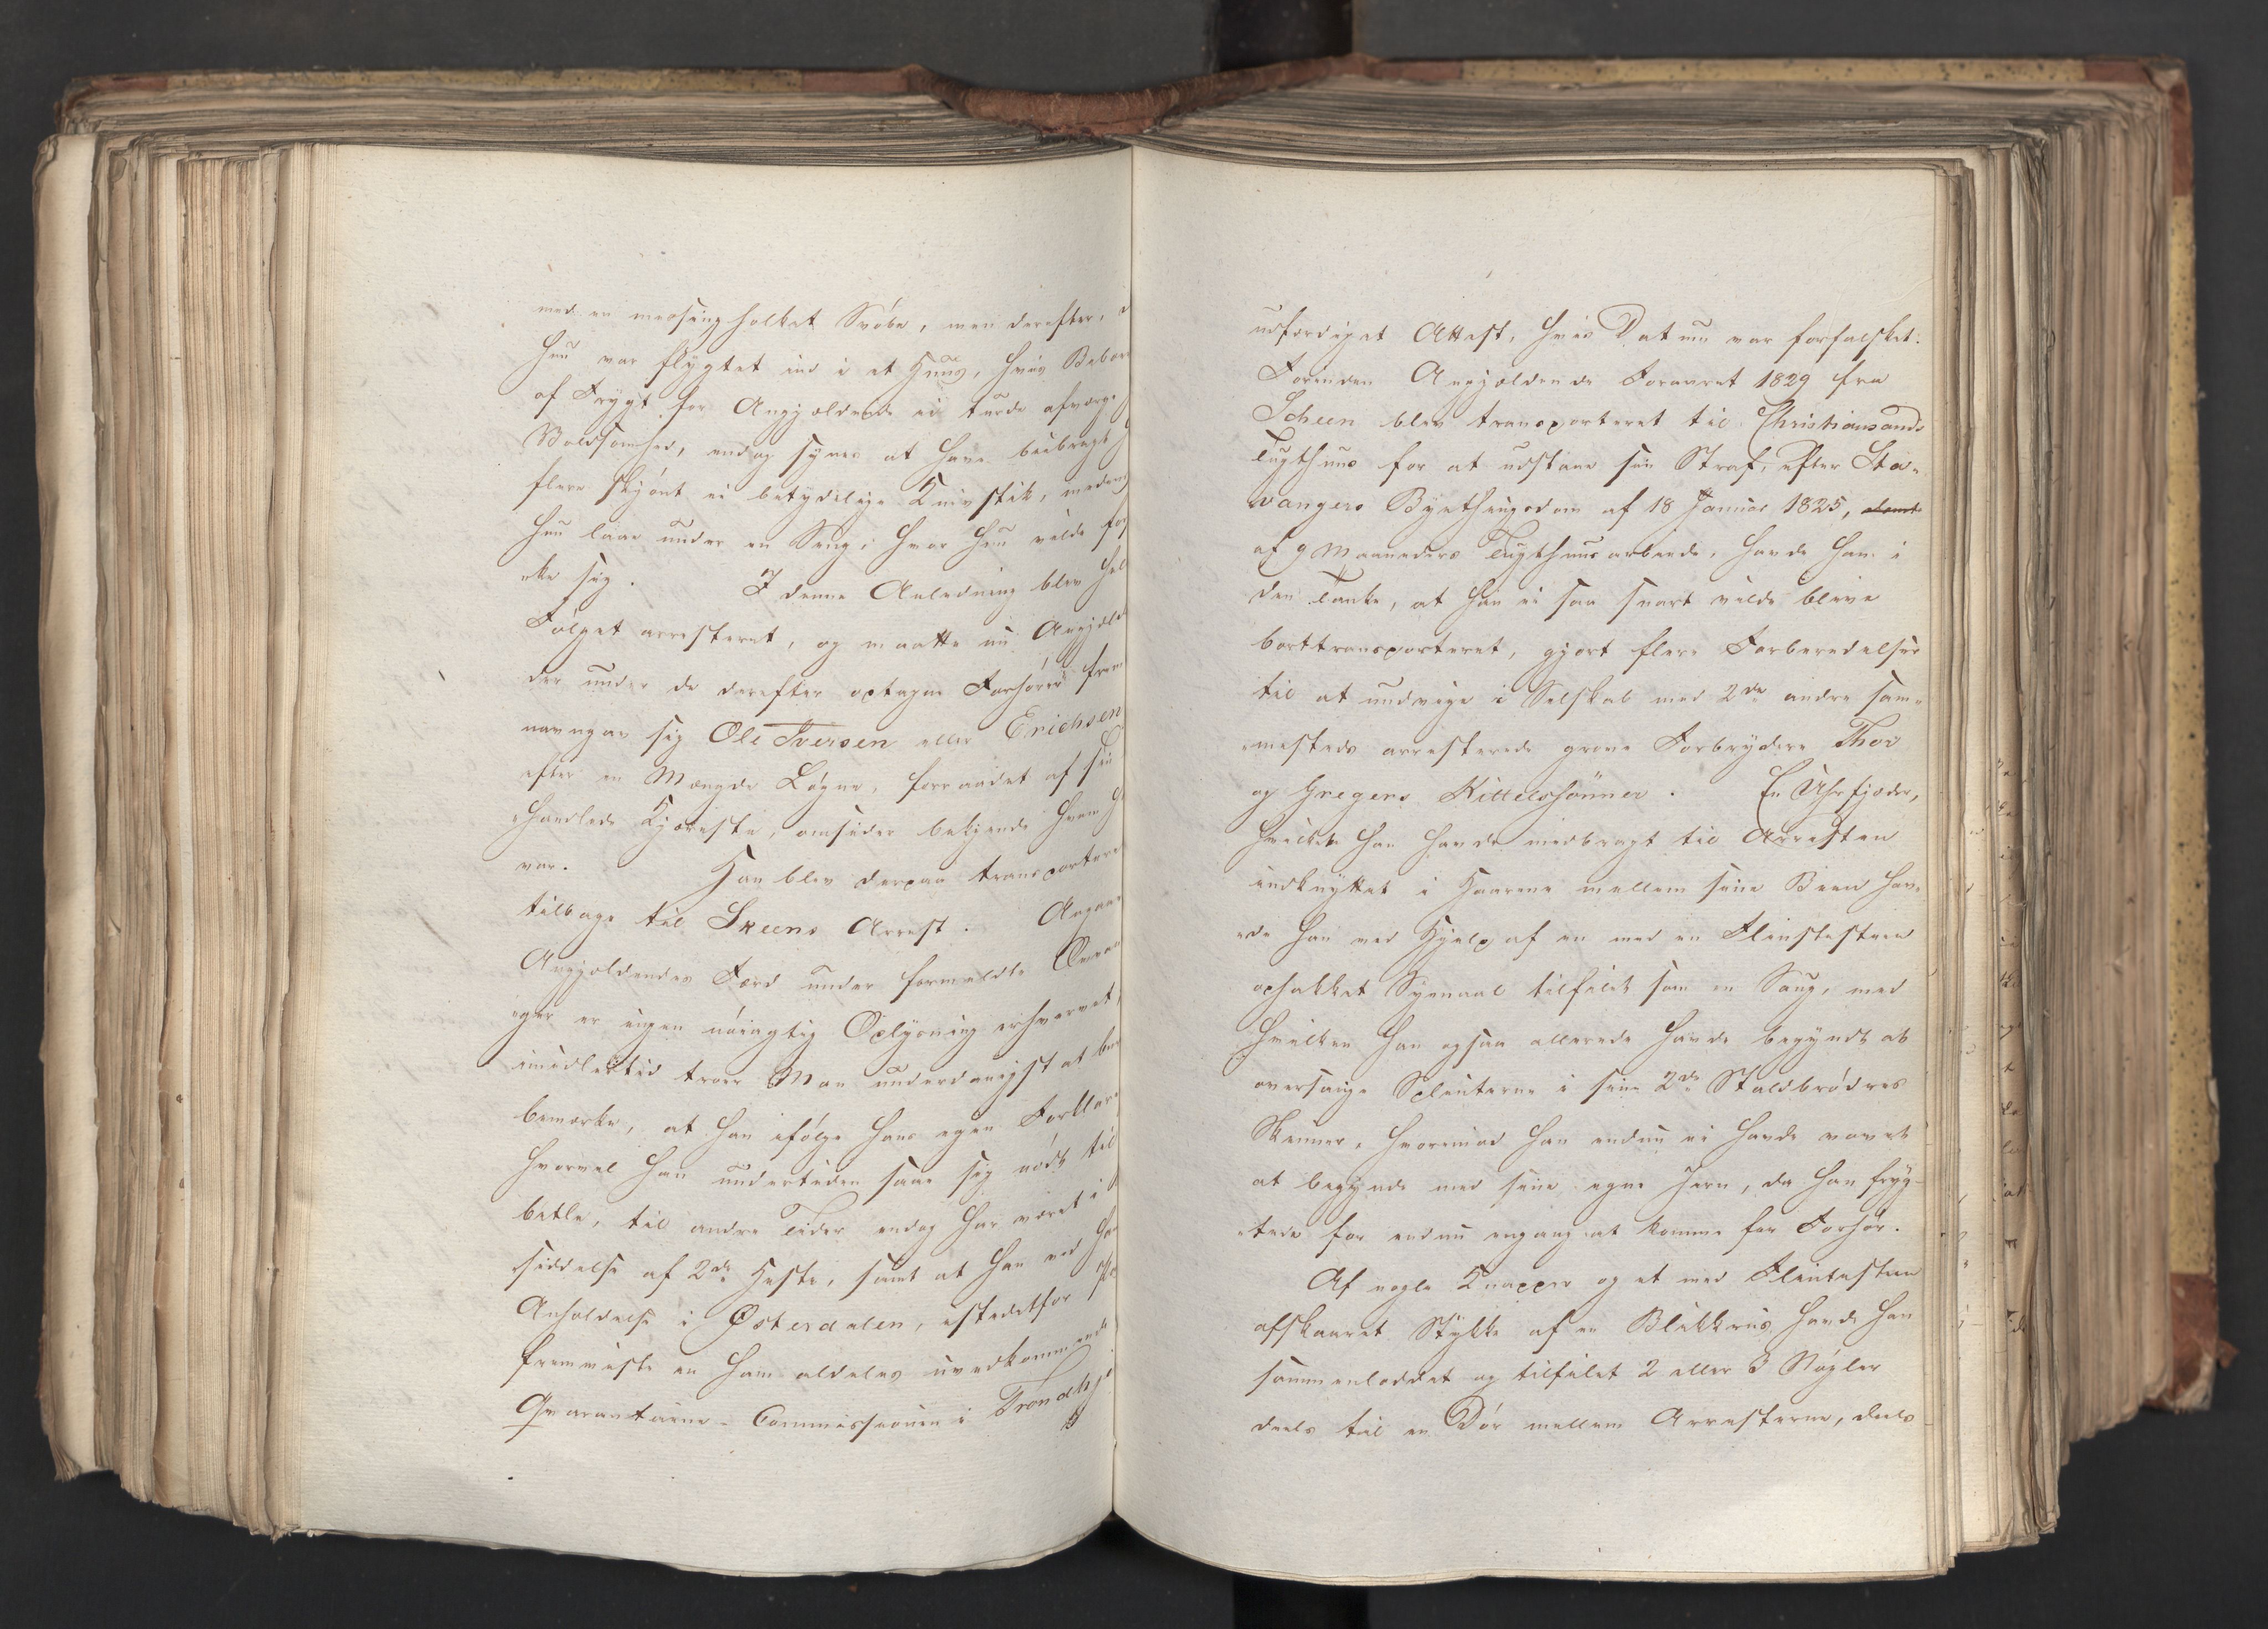 med en messing holket Svøbe, men derefter, d
hun var flygtet ind i et Huus, hvis Beboe
af Frygt for Angjældende ei turde afværge
Voldsomhed, endog synes at have bibragt h
flere skjønt ei betydelige Knivstik, medens
hun laae under en Seng, hvor hun vilde for
ikke sig. I denne Anledning blev hele
Følget arresteret, og maatte nu Angjæld
der under de derefter optagne Forhører frem
navngav sig Ole Iversen eller Erichsen
efter en Mængde Løgne, forraadet af sin
handlede Kjæreste, omsider bekjende hvem h
var. Han blev derpaa transportere
tilbage til Skeens Arrest. Angaae
Angjældendes Færd under formeldte Omva
ger er ingen nøiagtig Oplysning erhvervet,
imidlertid troer Man underdanigst at bu
bemærke, at han ifølge hans egen Forklar
hvorvel han undertiden saae sig nødt til
betle, til andre Tider endog har været i
siddelse af 2de Heste, samt at han ved ha
Anholdelse i Østerdalen, istedetfor
fremviiste en ham aldeles uvedkommende
Qvarantaine-Commissionen i Trondhj
udfærdiget Attest, hvis Datum var forfalsket.
Forinden Angjældende Foraaret 1829 fra
Scheen blev transporteret til Christiansands
Tugthuus for at udstaae sin Straf, efter Sta-
vangers Byethingsdom af 18 Januar 1825,
af 9 Maaneders Tugthuusarbeide, havde han i
den Tanke, at han ei saa snart vilde blive
borttransporteret, gjort flere Forberedelser
til at undvige i Selskab med 2de andre sam-
mesteds arresterede grove Forbrydere Thor
og Gregers Kittelsønner. En Uhrfjæder,
hvilken han havde medbragt til Arresten
indknyttet i Haarene mellem sine Been hav-
de han ved Hjelp af en med en Flintesteen
ophakket Synaal tilfilet som en Saug, med
hvilken han ogsaa allerede havde begyndt at
oversauge Splinterne i sine 2de Staldbrødres
Skinner, hvorimod han endnu ei havde vovet
at begynde med sine egne Jern, da han fryg-
tede for endnu engang at komme for Forhør.
Af nogle Knapper og et med Flintesteen
afskaaret Stykke af en Blikkruus havde han
sammenloddet og tilfilet 2 eller 3 Nøgler
deels til en Dør mellem Arresterne, deels